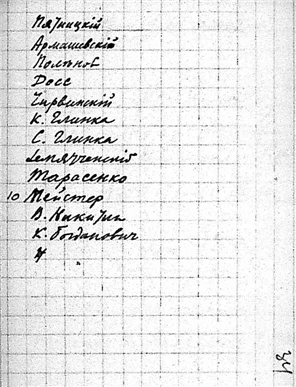 Пятницкій
Армашевскій
Полѣнов
Досс
Чирвинскій
К. Глинка
С. Глинка
Земятченскій
Тарасенко
10 Мейстер
К. Богданович